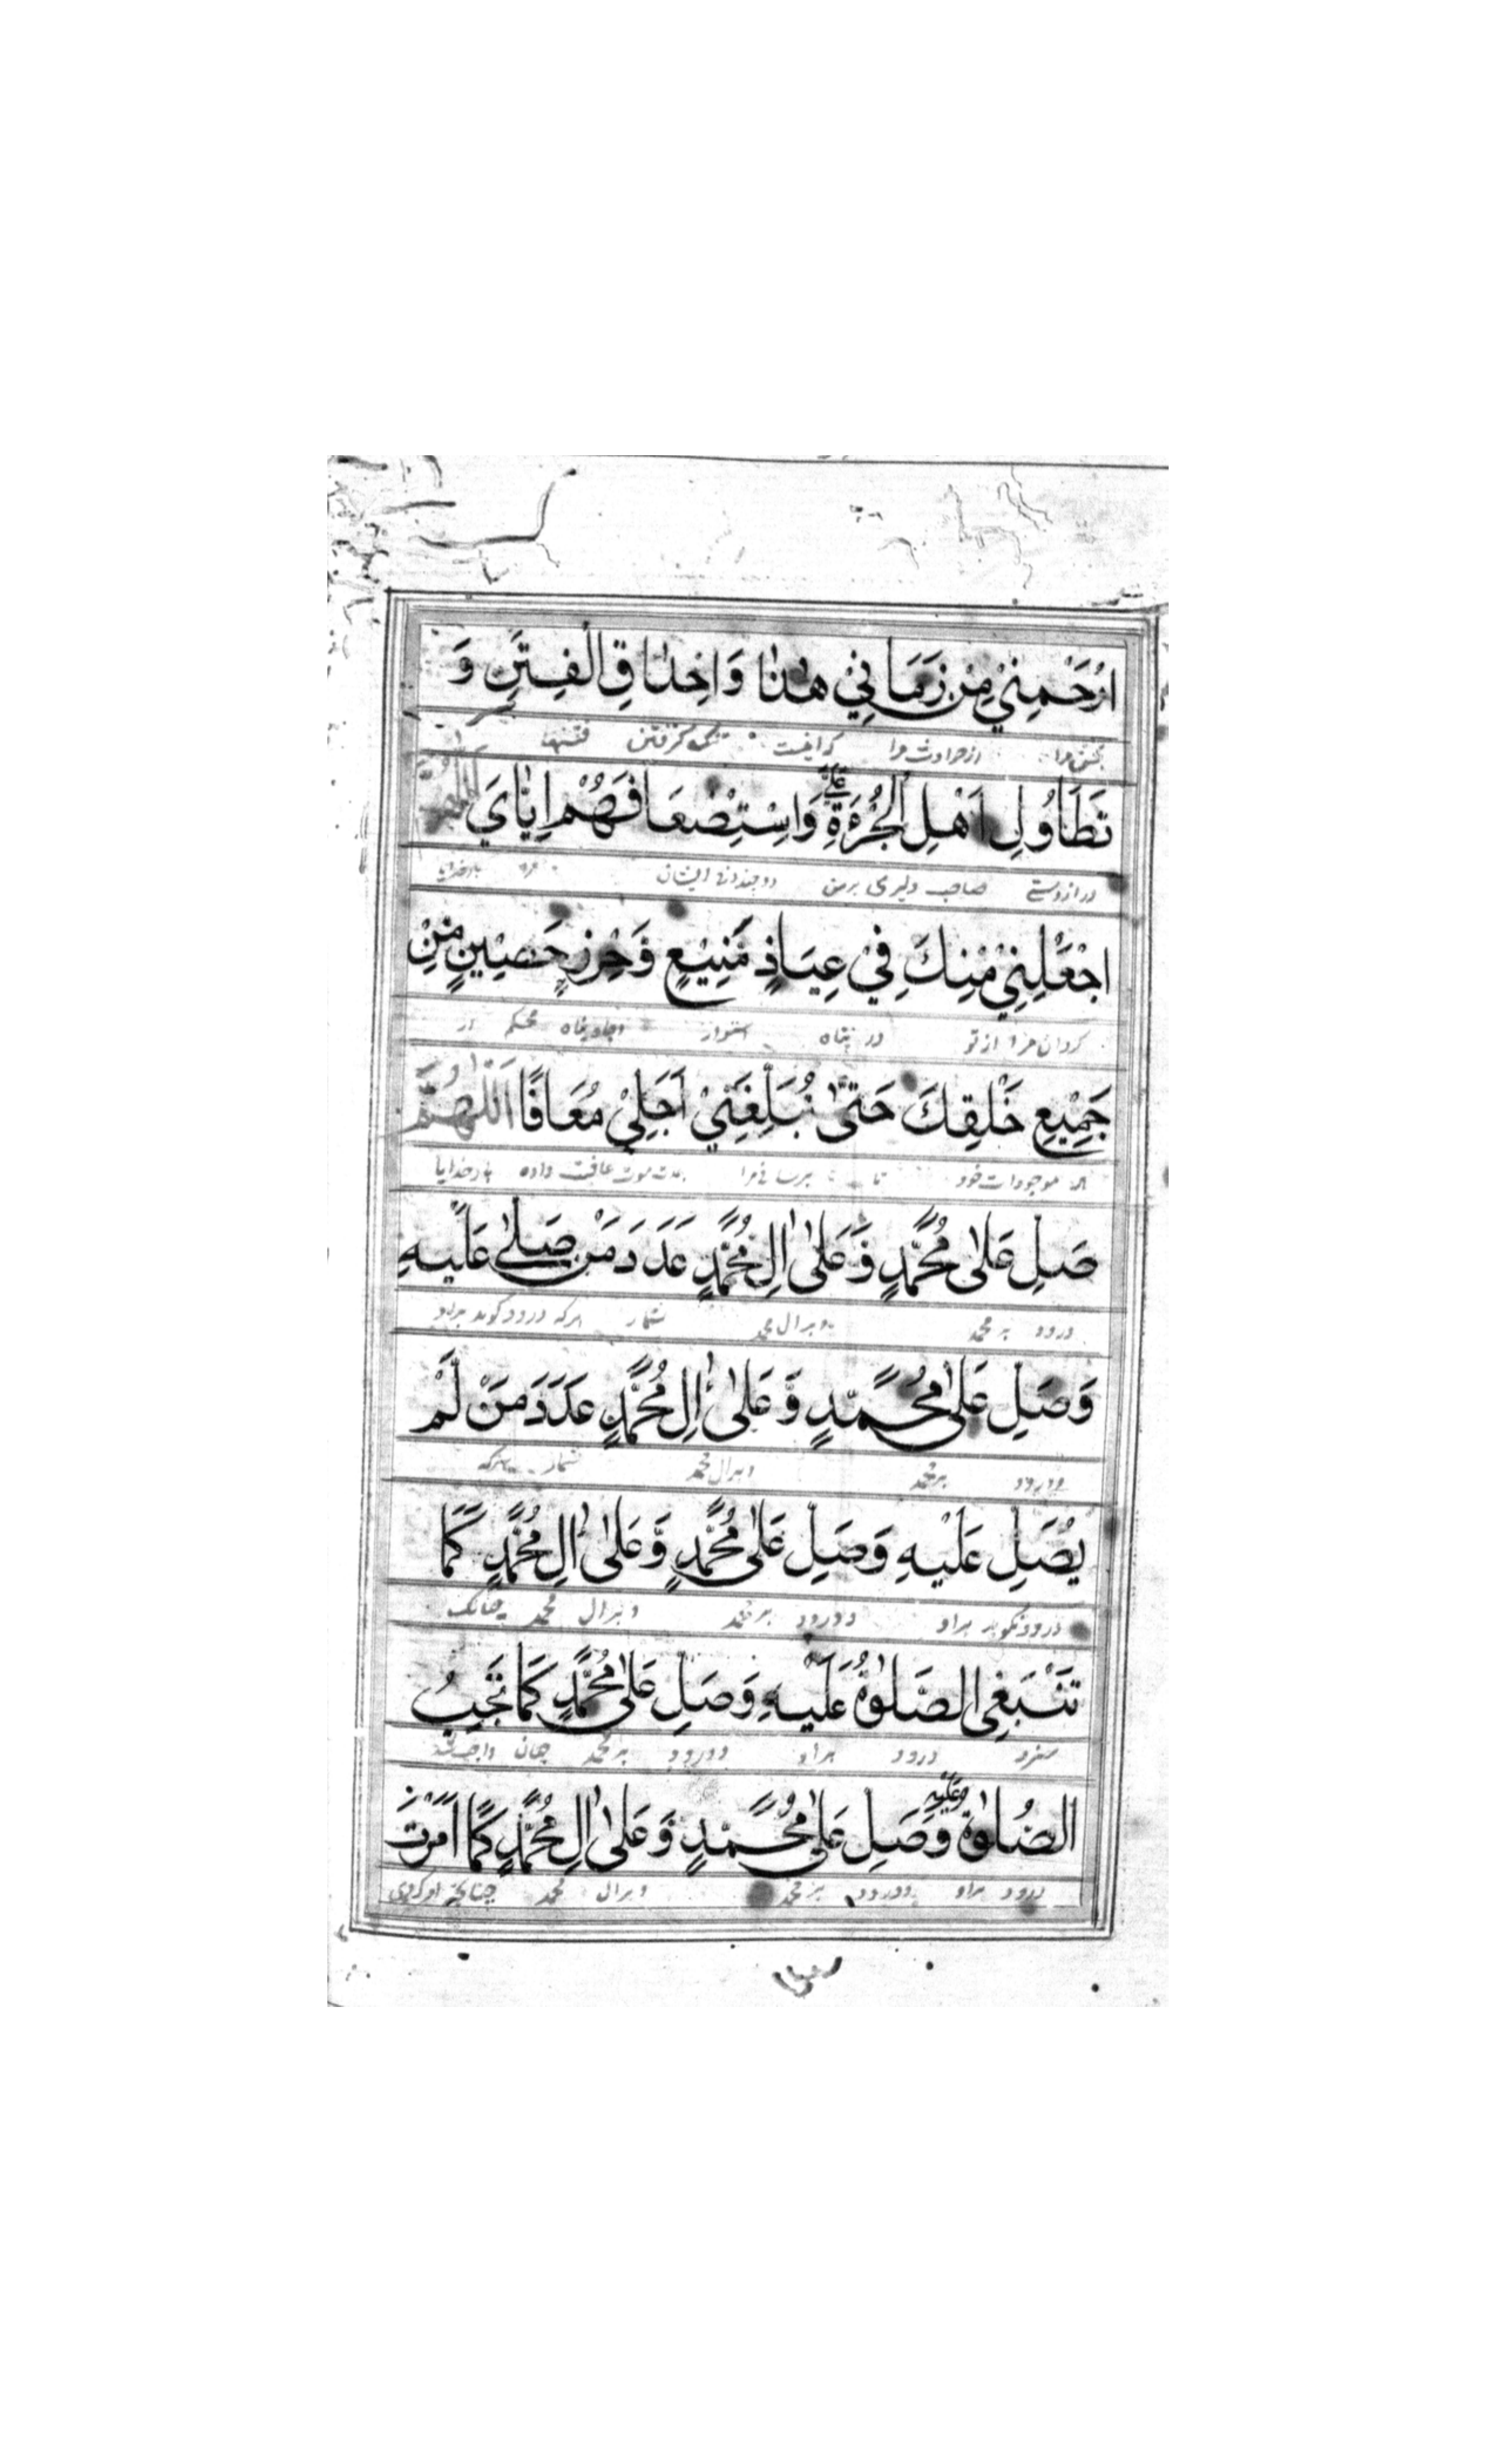 اِرْحَمْنِيْ مِنْ زَمَانِيْ هٰذَا وَاِحْدَاقِ الْفِتَنِ وَ
بخش مرا از حوادث مرا که اینست تنگ گرفتن فتنها
تَطَاوُلِ اَهْلِ الْجُرْءَةِ عَلَيَّ وَاسْتِضْعَافِهُمْ اِيَّايَ اَللّٰهُمَّ
دراز دستی صاحب دلیری بر من ایشان بار خدایا
اجْعَلْنِيْ مِنْكَ فِيْ عِيَاذٍ مَّنِيْعٍ وَّحِرْزٍ حَصِيْنٍ مِّنْ
کردان مرا از تو در پناه استوار محکم از
جَمِيْعِ خَلْقِكَ حَتّٰى تُبَلِّغَنِيْ اَجَلِيْ مُعَافًا اَللّٰهُمَّ
موجودات خود تا برسانی مرا بمدت موت عافیت داده بار خدایا
صَلِ عَلٰى مُحَمَّدٍ وَّعَلٰى اٰلِ مُحَمَّدٍ عَدَدَ مَنْ صَلّٰى عَلَيْهِ
درود بر محمد و بر ال محمد شمار هر که درود کوید بر او
وَصَلِ عَلٰى مُحَمَّدٍ وَّعَلٰى اٰلِ مُحَمَّدٍ عَدَدَ مَنْ لَّمْ
ودرود بر محمد و بر ال محمد شمار هرکه
يُصَلِ عَلَيْهِ وَصَلِ عَلٰى مُحَمَّدٍ وَّعَلٰى اٰلِ مُحَمَّدٍ كَمَا
درود نکوید بر او و درود بر محمد و بر ال محمد چنانک
تَنْبَغِى الصَّلٰوةُ عَلَيْهِ وَصَلِ عَلٰى مُحَمَّدٍ كَمَا تَجِبُ
سزد درود بر او و درود بر محمد چنان واجب شد
الصَّلٰوةُ عَلَيْهِ وَصَلِ عَلٰى مُحَمَّدٍ وَّعَلٰى اٰلِ مُحَمَّدٍ كَمَا اَمَرْتَ
درود بر او و درود بر محمد و بر ال محمد چنانچه امر کردی